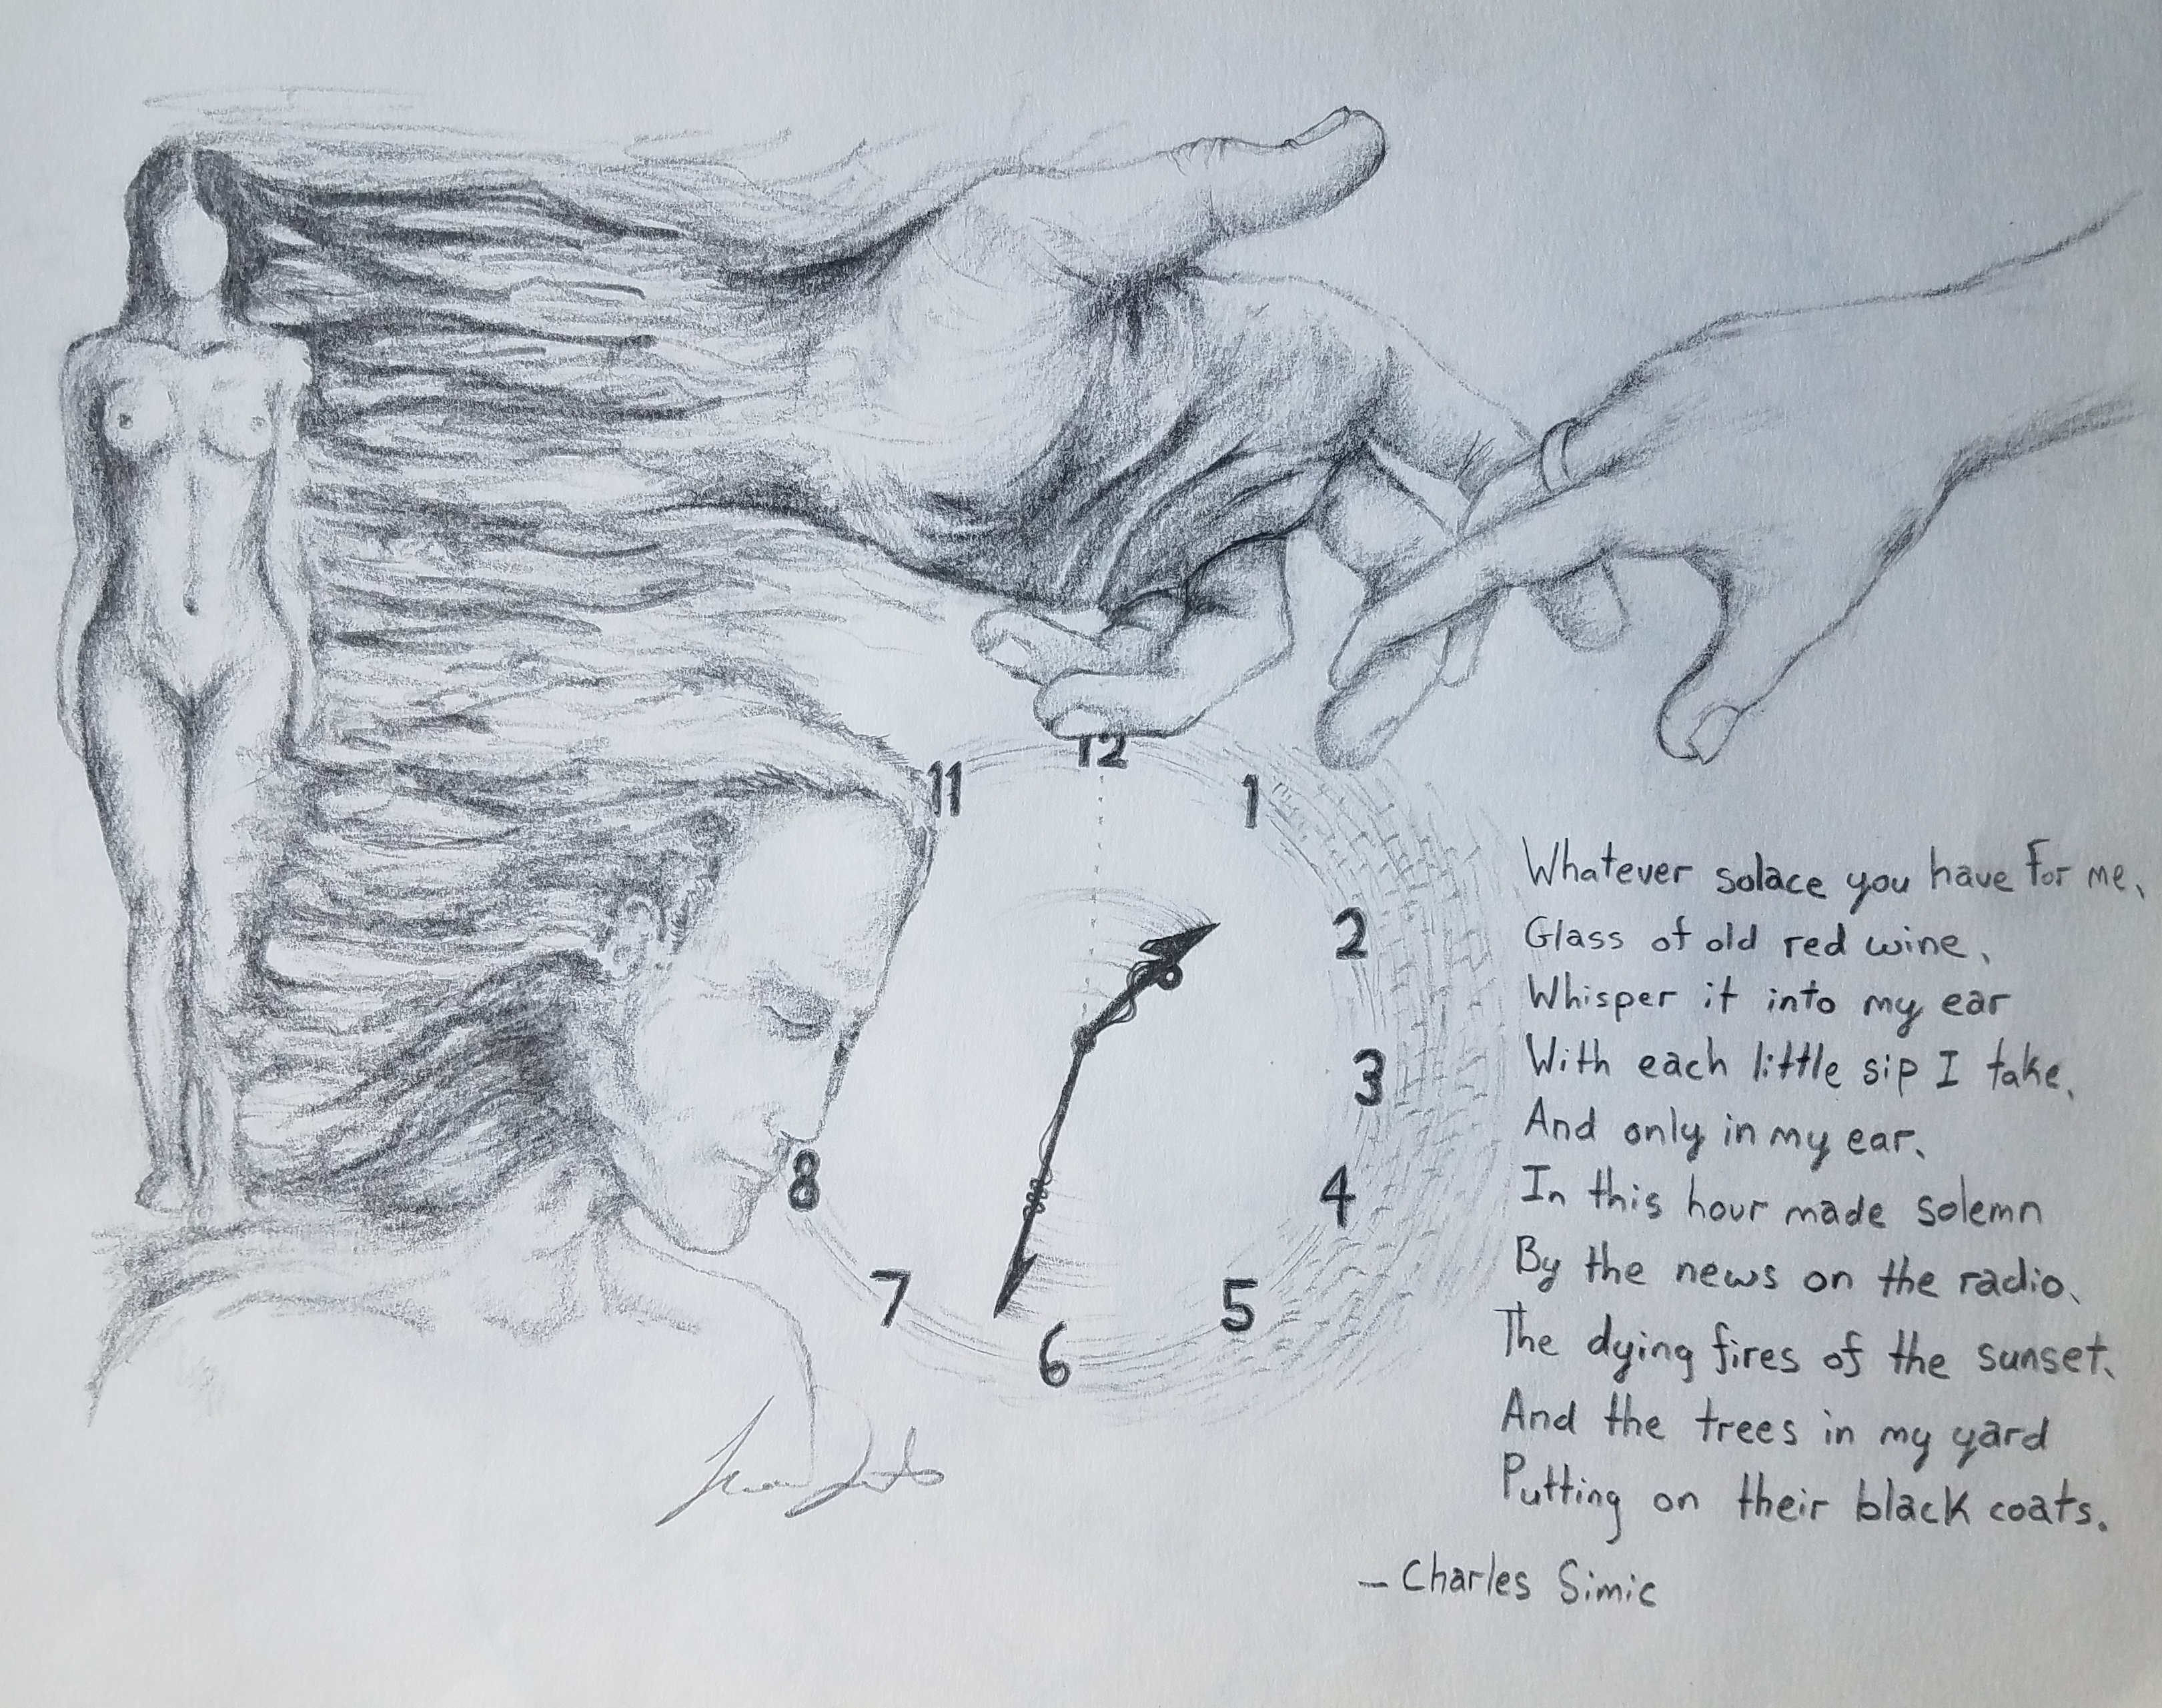 11
12
1
2
3
4
5
6
7
8
Whatever solace you have for me,
Glass of old red wine,
Whisper it into my ear
With each little sip I take,
And only in my ear,
In this hour made solemn
By the news on the radio,
The dying fires of the sunset,
And the trees in my yard
Putting on their black coats.
— Charles Simic